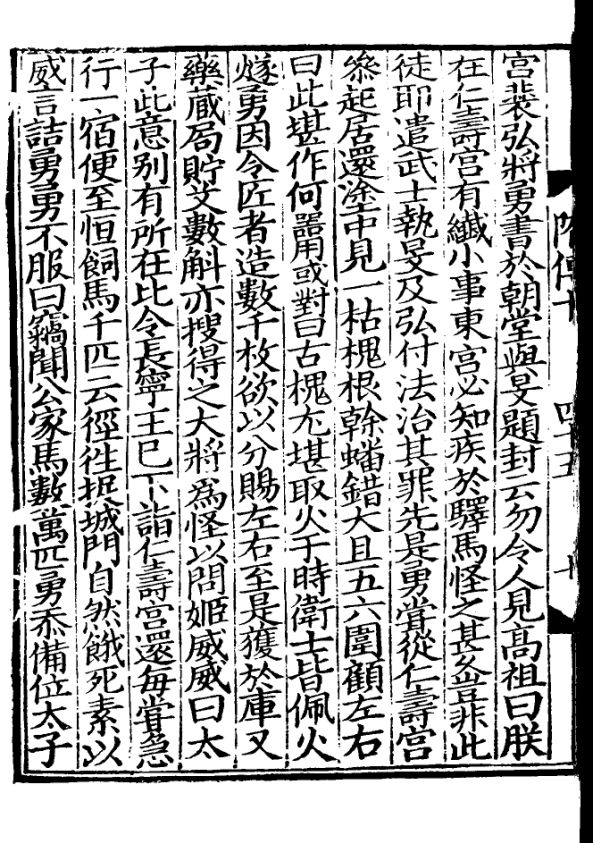 宫裴弘將勇書於朝堂與旻題封云勿令人見高祖曰朕
在仁壽宫有纎小事東宫必知疾於驛馬怪之甚乆豈非此
徒耶遣武士執旻及弘付法治其罪先是勇嘗從仁壽宫
叅起居還塗中見一枯槐根幹蟠錯大且五六圍顧左右
曰此堪作何噐用或對曰古槐尤堪取火于時衛士皆佩火
燧勇因令匠者造數千枚欲以分賜左右至是獲於庫又
藥蔵局貯艾數斛亦搜得之大將爲怪以問姬威威曰太
子此意别有所在比令長寧王已下詣仁壽宫還每嘗急
行一宿便至恒飼馬千匹云徑徃捉城門自然餓死素以
威言詰勇勇不服曰竊聞公家馬數萬匹勇忝備位太子
隋傳十
四十五
十